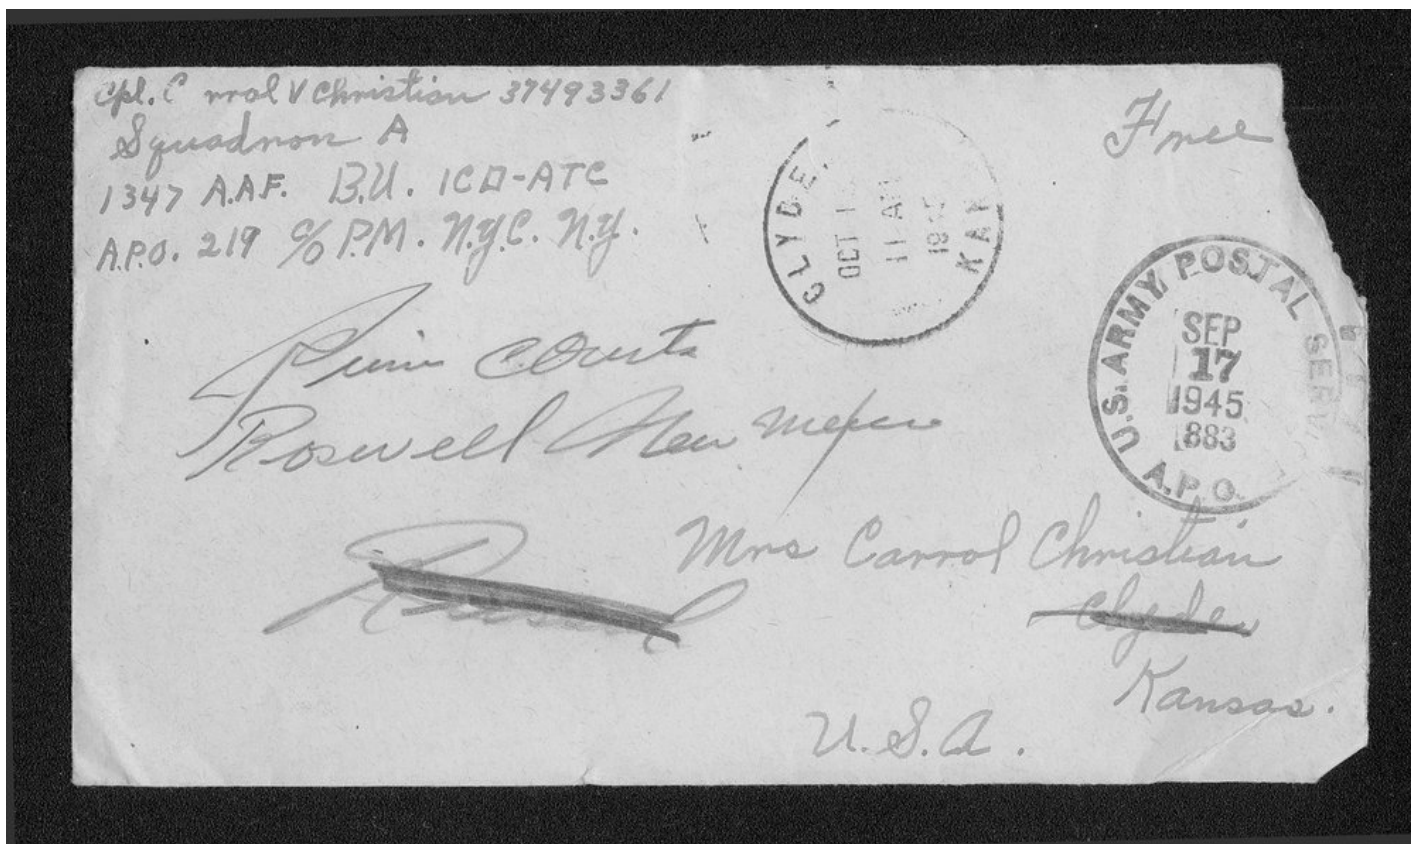 Cpl. C rrol V Christian 37493361
Squadron A
1347 A.A.F. B.U. ICD-ATC
A.P.O. 219 c/o P.M. N.Y.C. N.Y.
Free
CLYDE
OCT 1
11 AM
KAN
U.S. ARMY POSTAL SERV
SEP
17
1945
883
A.P.O.
Courts
Roswell New Mexico
Mrs Carrol Christian
Clyde
Kansas.
U.S.A.